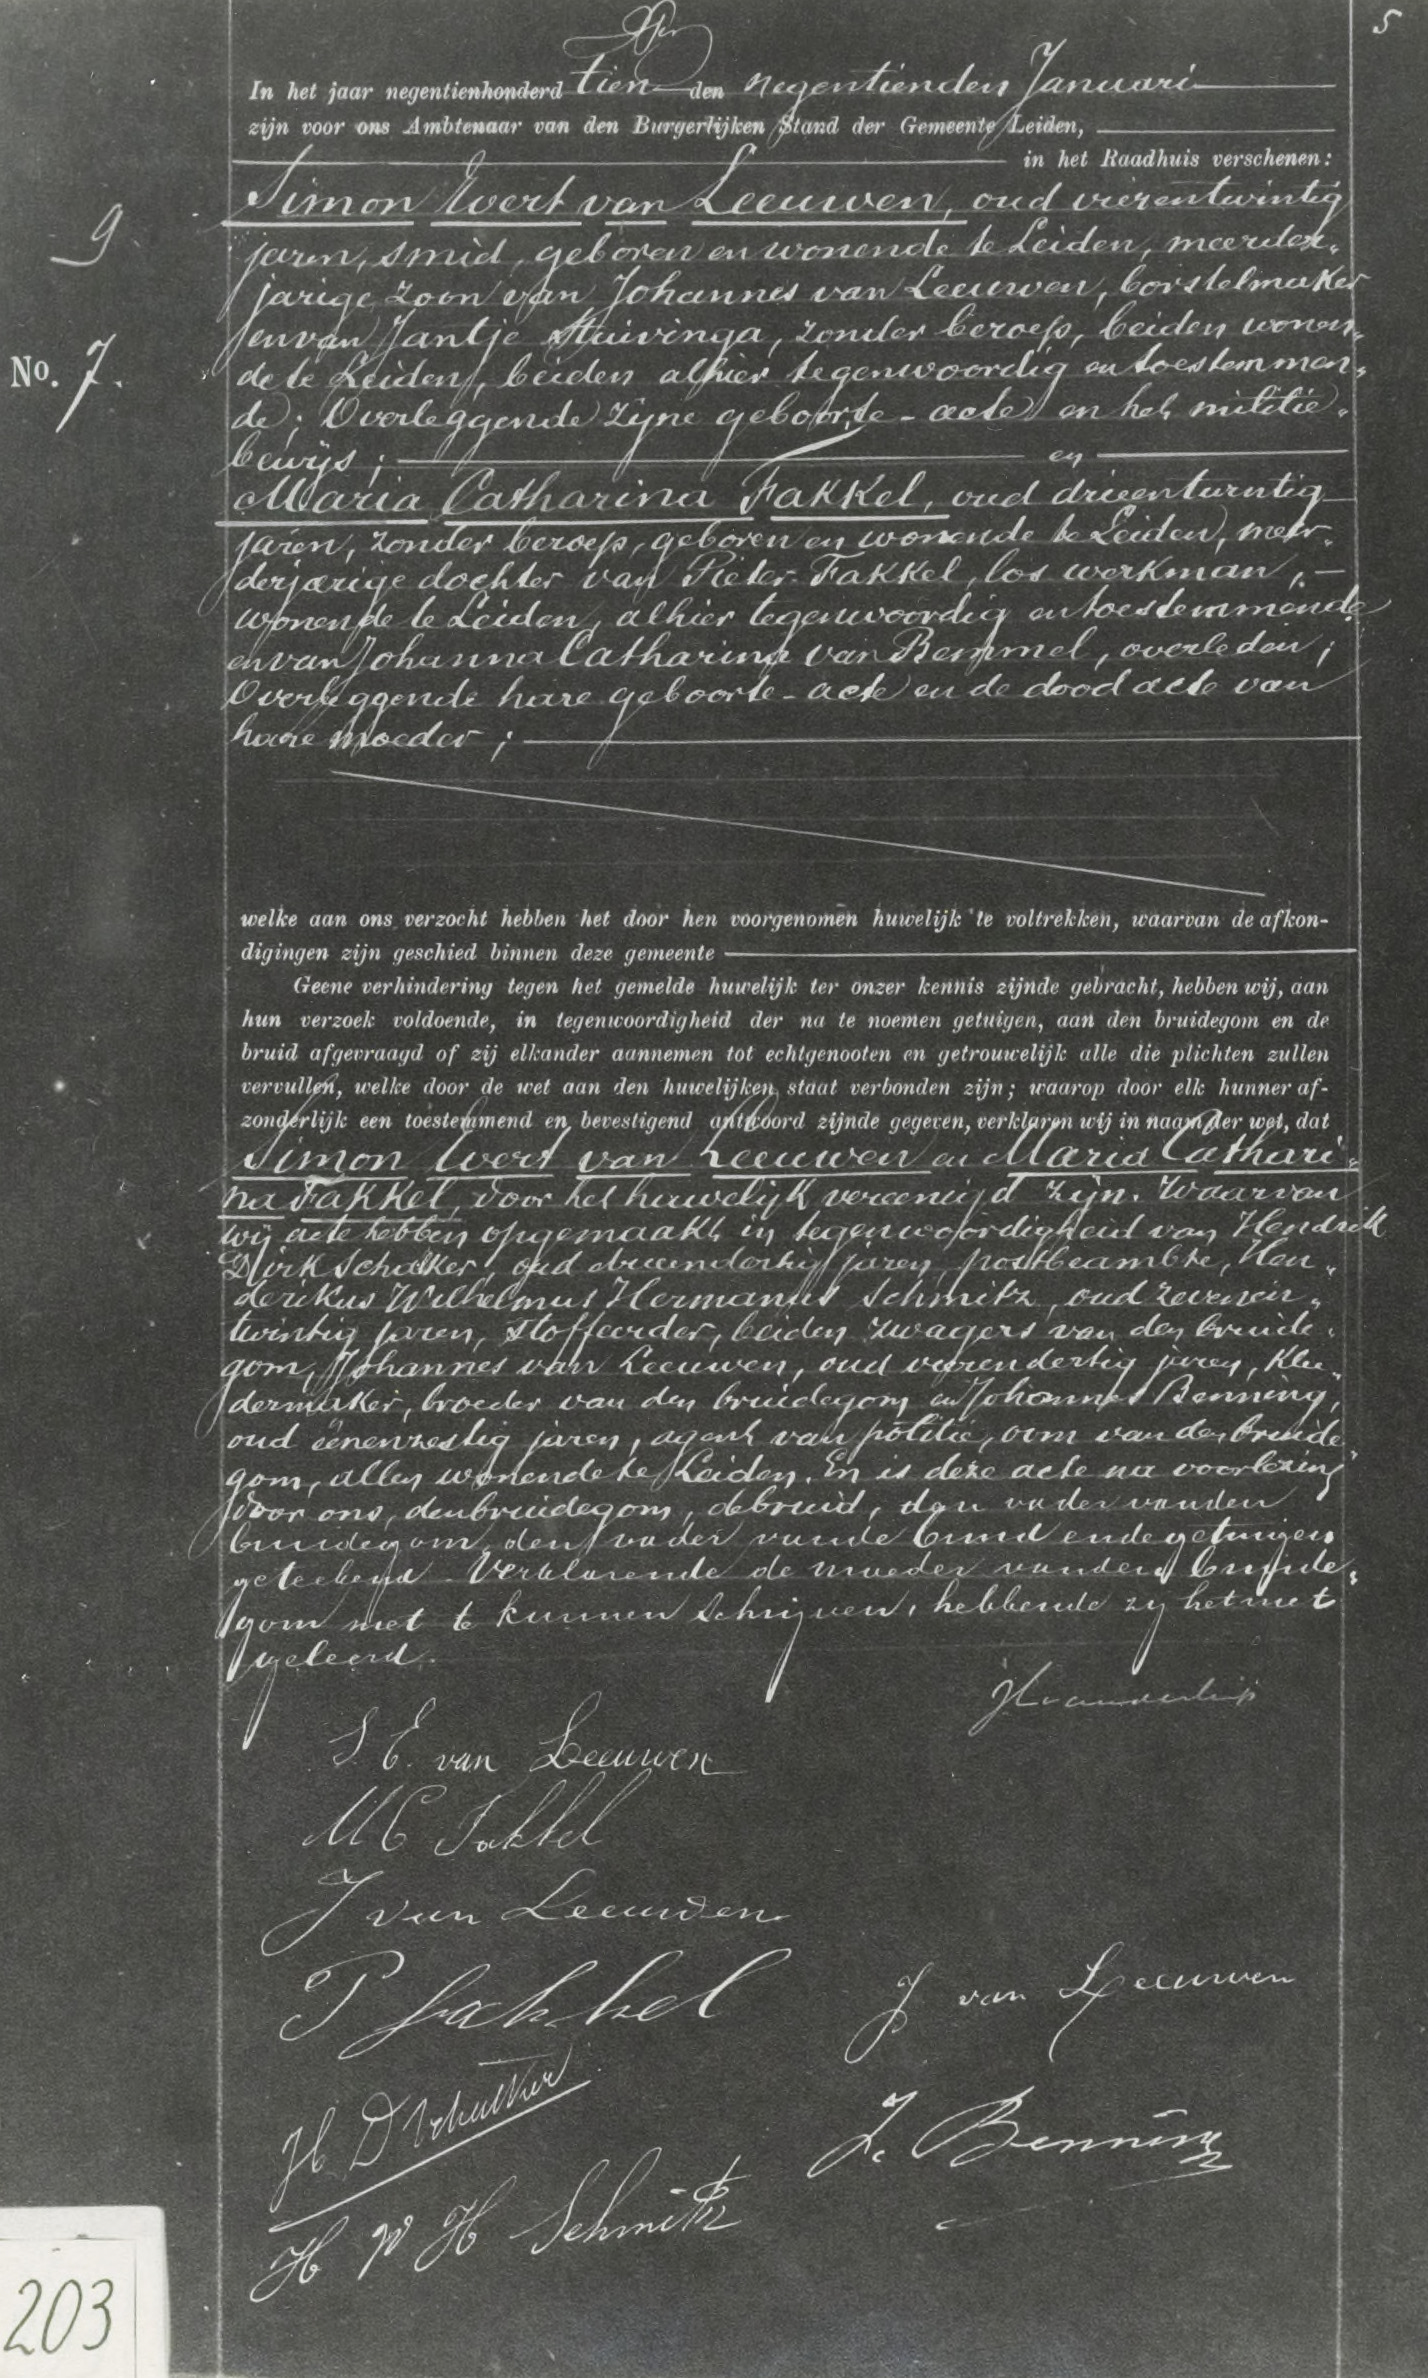 5
In het jaar negentienhonderd tien den negentienden Januari
zijn voor ons Ambtenaar van den Burgerlijken Stand der Gemeente Leiden,
in het Raadhuis verschenen:
Simon Evert van Leeuwen, oud vierentwintig
9
jaren, smid, geboren en wonende te Leiden, meerder„
jarige zoon van Johannes van Leeuwen, borstelmaker
en van Jantje Stuivinga, zonder beroep, beiden wonen„
No. 7.
de te Leiden, beiden alhier tegenwoordig en toestemmen„
de; Overleggende zijne geboorte-acte en het militie„
bewijs; en
Maria Catharina Fakkel, oud drieentwintig
jaren, zonder beroep, geboren en wonende te Leiden, meer„
derjarige dochter van Pieter Fakkel, los werkman,
wonende te Leiden, alhier tegenwoordig en toestemmende
en van Johanna Catharina van Bemmel, overleden;
Overleggende hare geboorte-acte en de dood acte van
hare moeder;
welke aan ons verzocht hebben het door hen voorgenomen huwelijk te voltrekken, waarvan de afkon-
digingen zijn geschied binnen deze gemeente
Geene verhindering tegen het gemelde huwelijk ter onzer kennis zijnde gebracht, hebben wij, aan
hun verzoek voldoende, in tegenwoordigheid der na te noemen getuigen, aan den bruidegom en de
bruid afgevraagd of zij elkander aannemen tot echtgenooten en getrouwelijk alle die plichten zullen
vervullen, welke door de wet aan den huwelijken staat verbonden zijn; waarop door elk hunner af-
zonderlijk een toestemmend en bevestigend antwoord zijnde gegeven, verklaren wij in naam der wet, dat
Simon Evert van Leeuwen en Maria Cathari„
na Fakkel, door het huwelijk vereenigd zijn. Waarvan
wij acte hebben opgemaakt in tegenwoordigheid van Hendrik
Dirk Schakker, oud drieendertig jaren, postbeambte, Hen„
derikus Wilhelmus Hermanus Schmitz, oud zevenen„
twintig jaren, stoffeerder, beiden zwagers van den bruide„
gom, Johannes van Leeuwen, oud vierendertig jaren, klee„
dermaker, broeder van den bruidegom en Johannes Benning,
oud eenenzestig jaren, agent van politie, oom van den bruide„
gom, allen wonende te Leiden. En is deze acte na voorlezing
door ons, den bruidegom, de bruid, den vader van den
bruidegom, den vader van de bruid en de getuigen
geteekend. Verklarende de moeder van den bruide„
gom niet te kunnen schrijven, hebbende zij het niet
geleerd.
S. E. van Leeuwen
M C Fakkel
J van Leeuwen
P Fakkel
J van Leeuwen
H D Schakker
J. Benning
H W H Schmitz
203